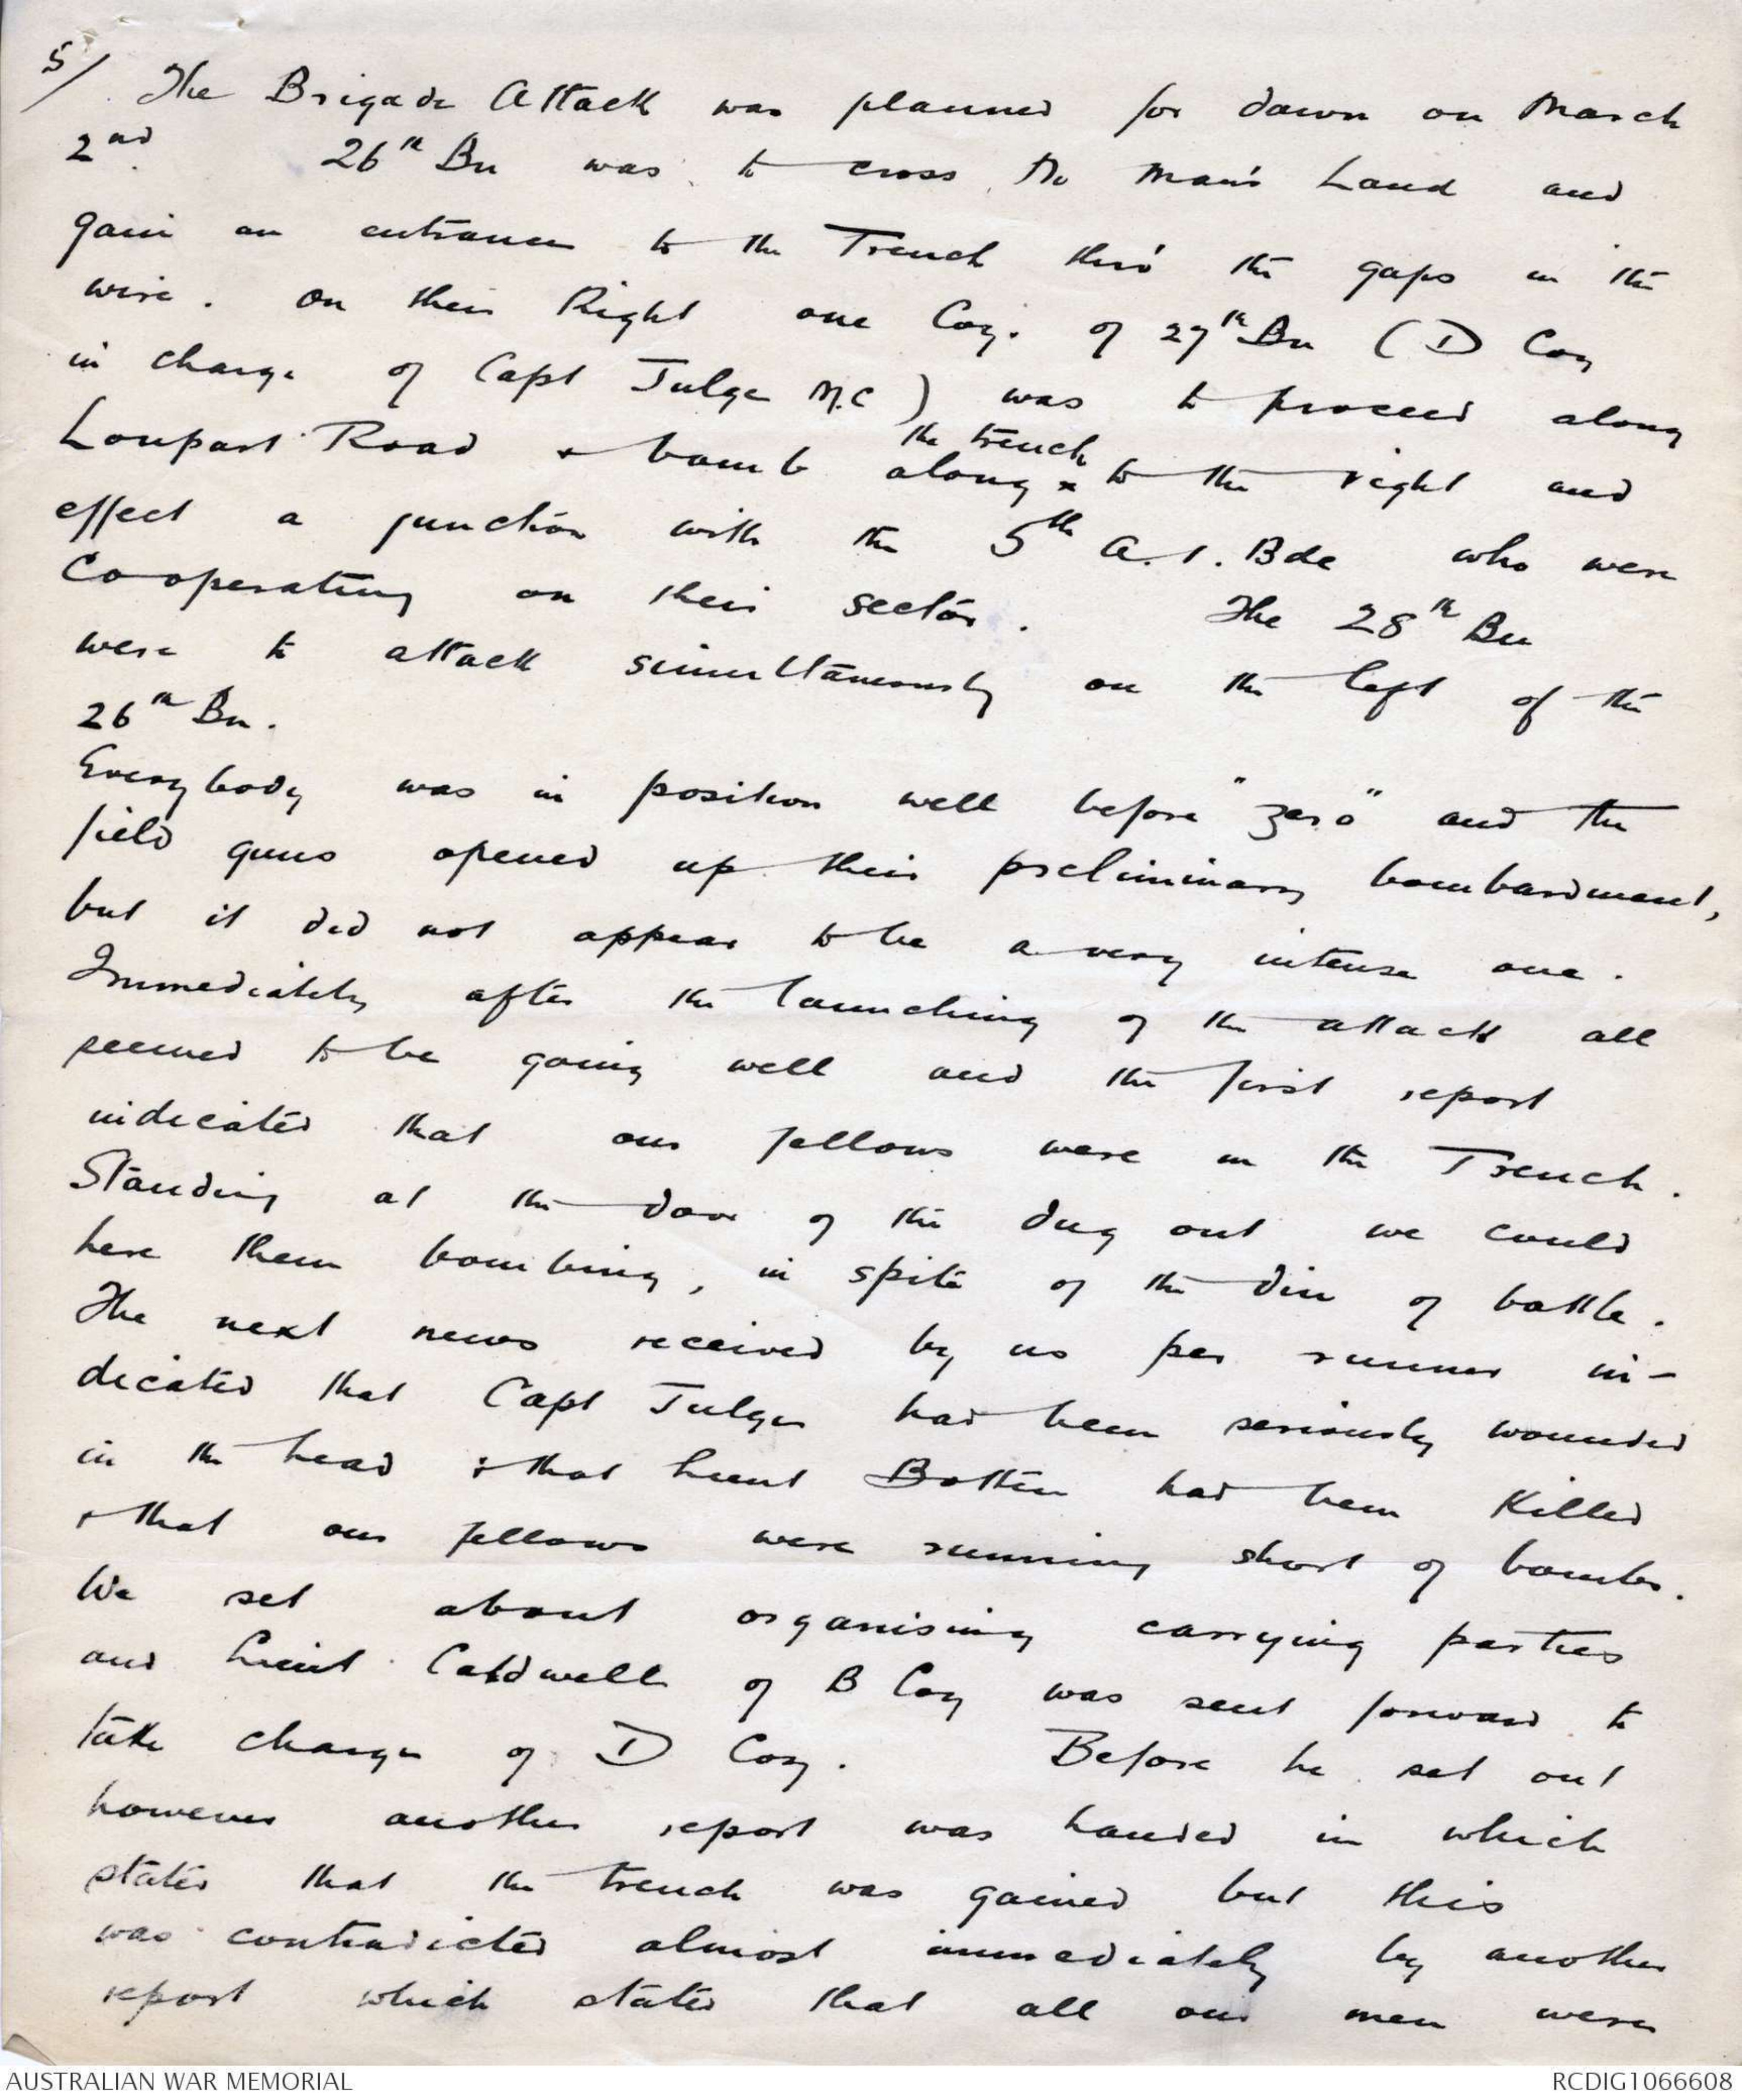 5/ The Brigade Attack was planned for dawn on March
2nd. 26th Bn was to cross No Man's Land and
gain an entrance to the Trench thro' the gaps in the
wire. On their Right one Coy. of 27th Bn (D Coy
in charge of Capt Julge M.C) was to proceed along
the trench
Loupart Road & bomb along x to the right and
effect a junction with the 5th A.I. Bde who were
Cooperating on their sector. The 28th Bn
were to attack simultaneously on the left of the
26th Bn.
Everybody was in position well before "zero" and the
field guns opened up their preliminary bombardment,
but it did not appear to be a very intense one.
Immediately after the launching of the attack all
seemed to be going well and the first report
indicated that our fellows were in the Trench.
Standing at the door of the dug out we could
here them bombing, in spite of the din of battle.
The next news received by us per runner in-
dicated that Capt Julge had been seriously wounded
in the head & that Lieut Botten had been Killed
& that our fellows were running short of bombs.
We set about organising carrying parties
and Lieut Caldwell of B Coy was sent forward to
take charge of D Coy. Before he set out
however another report was handed in which
stated that the trench was gained but this
was contradicted almost immediately by another
report which stated that all our men were
AUSTRALIAN WAR MEMORIAL
RCDIG1066608